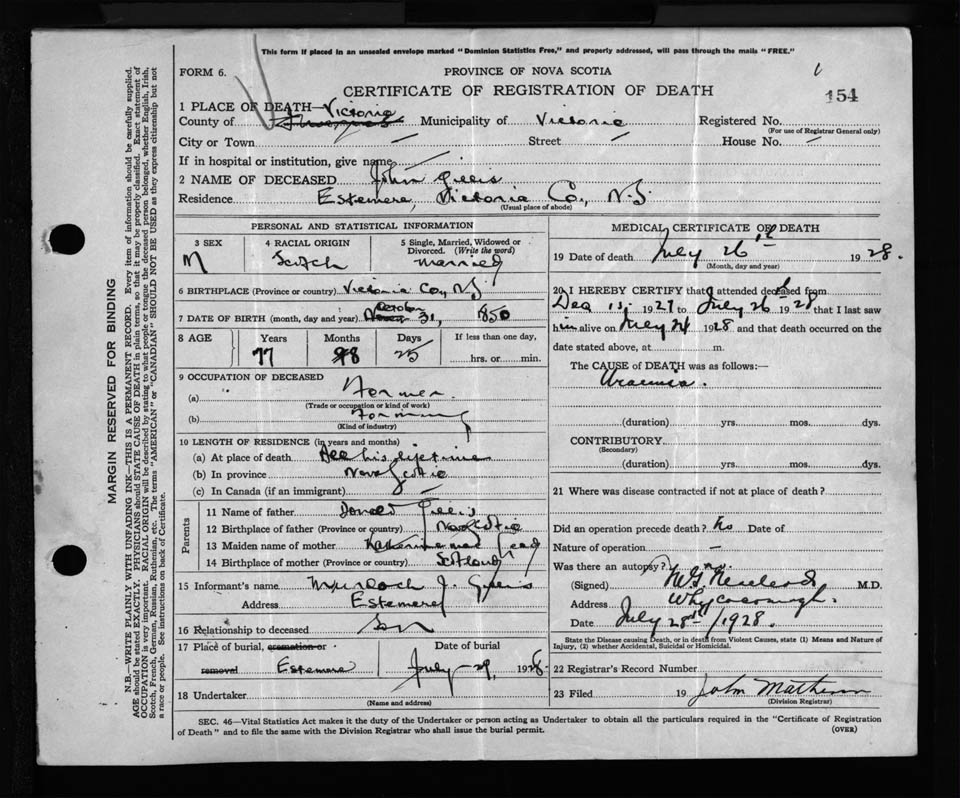 This form if placed in an unsealed envelope marked "Dominion Statistics Free," and properly addressed, will pass through the mails "FREE."
FORM 6.
PROVINCE OF NOVA SCOTIA
CERTIFICATE OF REGISTRATION OF DEATH
154
1 PLACE OF DEATH— Victoria
County of Municipality of Victoria Registered No.
(For use of Registrar General only)
City or Town — Street — House No. —
If in hospital or institution, give name —
2 NAME OF DECEASED John Gillis
Residence Estemere, Victoria Co., N.S.
(Usual place of abode)
PERSONAL AND STATISTICAL INFORMATION
3 SEX 4 RACIAL ORIGIN 5 Single, Married, Widowed or Divorced. (Write the word)
M Scotch Married
6 BIRTHPLACE (Province or country) Victoria Co, N.S
7 DATE OF BIRTH (month, day and year) October 31, 1850
8 AGE Years Months Days If less than one day,
77 8 25 hrs. or min.
9 OCCUPATION OF DECEASED
(a) Farmer
(Trade or occupation or kind of work)
(b) Farming
(Kind of industry)
10 LENGTH OF RESIDENCE (in years and months)
(a) At place of death All his lifetime
(b) In province Nova Scotia
(c) In Canada (if an immigrant) —
Parents
11 Name of father Donald Gillis
12 Birthplace of father (Province or country) Nova Scotia
13 Maiden name of mother Katherine
14 Birthplace of mother (Province or country) Scotland
15 Informant's name Murdoch J. Gillis
Address Estemere
16 Relationship to deceased Son
17 Place of burial, cremation or Date of burial
removal Estemere July 29, 1928
18 Undertaker
(Name and address)
MEDICAL CERTIFICATE OF DEATH
19 Date of death July 26th 1928.
(Month, day and year)
20 I HEREBY CERTIFY that I attended deceased from
1927 to July 26th 1928 that I last saw
him alive on July 24 1928 and that death occurred on the
date stated above, at m.
The CAUSE of DEATH was as follows:—
Uraemia.
(duration) yrs. mos. dys.
CONTRIBUTORY
(Secondary)
(duration) yrs. mos. dys.
21 Where was disease contracted if not at place of death?
Did an operation precede death? No Date of
Nature of operation —
Was there an autopsy? No
(Signed) M.D.
Address Whycocomagh.
Date July 28th/1928.
State the Disease causing Death, or in death from Violent Causes, state (1) Means and Nature of
Injury, (2) whether Accidental, Suicidal or Homicidal.
22 Registrar's Record Number
23 Filed 19 John Matheson
(Division Registrar)
SEC. 46—Vital Statistics Act makes it the duty of the Undertaker or person acting as Undertaker to obtain all the particulars required in the "Certificate of Registration
of Death" and to file the same with the Division Registrar who shall issue the burial permit.
(OVER)
MARGIN RESERVED FOR BINDING
N.B.—WRITE PLAINLY WITH UNFADING INK—THIS IS A PERMANENT RECORD. Every item of information should be carefully supplied.
AGE should be stated EXACTLY. PHYSICIANS should STATE CAUSE OF DEATH in plain terms, so that it may be properly classified. Exact statement of
OCCUPATION is very important. RACIAL ORIGIN will be described by stating to what people or tongue the deceased person belonged, whether English, Irish,
Scotch, French, German, Russian, Ruthenian, etc. The terms "AMERICAN" or "CANADIAN" SHOULD NOT BE USED as they express citizenship but not
a race or people. See instructions on back of Certificate.